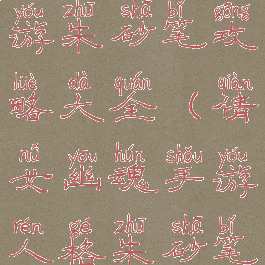 yóu zhū shā bǐ gōng
游朱砂笔攻
lüè dà quán qiàn
略大全（倩
nǚ yōu hún shǒu yóu
女幽魂手游
rén gé zhū shā bǐ
人格朱砂笔